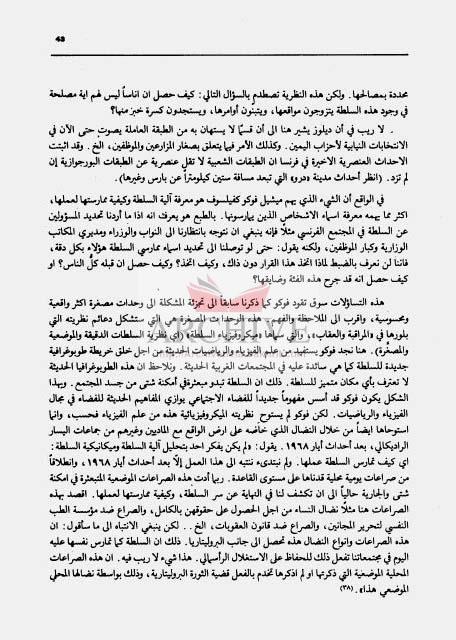 43
محددة بمصالحها. ولكن هذه النظرية تصطدم بالسؤال التالي: كيف حصل ان اناساً ليس لهم اية مصلحة
في وجود هذه السلطة يتزوجون مواقعها، ويتبنّون أوامرها، ويستجدون كسرة خبز منها؟
. لا ريب في أن ديلوز يشير هنا الى أن قسماً لا يستهان به من الطبقة العاملة يصوت حتى الآن في
الانتخابات النيابية لأحزاب اليمين. وكذلك الأمر فيما يتعلق بصغار المزارعين والموظفين، الخ. وقد اثبتت
الاحداث العنصرية الاخيرة في فرنسا ان الطبقات الشعبية لا تقل عنصرية عن الطبقات البورجوازية إن
لم تزد. (انظر أحداث مدينة «درو» التي تبعد مسافة ستين كيلومتراً عن بارس وغيرها).
في الواقع أن الشيء الذي يهم ميشيل فوكو كفيلسوف هو معرفة آلية السلطة وكيفية ممارستها لعملها،
اكثر مما يهمه معرفة اسماء الاشخاص الذين يمارسونها. بالطبع هو يعرف انه اذا ما أردنا تحديد المسؤولين
عن السلطة في المجتمع الفرنسي مثلاً فإنه ينبغي ان نتوجه بانتظارنا الى النواب والوزراء ومديري المكاتب
الوزارية وكبار الموظفين، ولكنه يقول: حتى لو توصلنا الى تحديد اسماء ممارسي السلطة هؤلاء بكل دقة،
فاننا لن نعرف بالضبط لماذا اتخذ هذا القرار دون ذاك، وكيف اتخذ؟ وكيف حصل ان قبله كلُّ الناس؟ او
كيف حصل انه قد جرح هذه الفئة وضايقها؟
هذه التساؤلات سوف تقود فوكو كما ذكرنا سابقاً الى تجزئة المشكلة الى وحدات مصغرة اكثر واقعية
ومحسوسية، واقرب الى الملاحظة والفهم. هذه الوحدات المصغرة هي التي ستشكل دعائم نظريته التي
بلورها في «المراقبة والعقاب»، والتي سماها «ميكروفيزياء السلطة» (اي نظرية السلطات الدقيقة والموضعية
والمصغّرة). هنا نجد فوكو يستفيد من علم الفيزياء والرياضيات الحديثة من اجل خلق خريطة طوبوغرافية
جديدة للسلطة كما هي سائدة عليه في المجتمعات الغربية الحديثة. ونلاحظ ان هذه الطوبوغرافيا الحديثة
لا تعترف بأي مكان متميز للسلطة. ذلك ان السلطة تبدو مبعثرة في أمكنة شتى من جسد المجتمع. وبهذا
الشكل يكون فوكو قد أسس مفهوماً جديداً للفضاء الاجتماعي يوازي المفاهيم الحديثة للفضاء في مجال
الفيزياء والرياضيات. لكن فوكو لم يستوح نظريته الميكروفيزيائية هذه من علم الفيزياء فحسب، وانما
استوحاها ايضا من خلال النضال الذي خاضه على ارض الواقع مع الماديين وغيرهم من جماعات اليسار
الراديكالي، بعد احداث أيار ١٩٦٨. يقول: «لم يكن يفكر احد بتحليل آلية السلطة وميكانيكية السلطة:
اي كيف تمارس السلطة عملها. ولم نبتدىء ننتبه الى هذا العمل إلّا بعد أحداث أيار ١٩٦٨، وانطلاقاً
من صراعات يومية محلية قدناها على مستوى القاعدة. ربما أدت هذه الصراعات الموضعية المتبعثرة في امكنة
شتى والجارية حالياً الى ان تكشف لنا في النهاية عن سر السلطة، وكيفية ممارستها لعملها. اقصد بهذه
الصراعات هنا مثلاً نضال النساء من اجل الحصول على حقوقهن بالكامل، والصراع ضد مؤسسة الطب
النفسي لتحرير المجانين، والصراع ضد قانون العقوبات، الخ.. ولكن ينبغي الانتباه الى ما سأقول: ان
هذه الصراعات وانواع النضال هذه تحصل الى جانب البروليتاريا. ذلك ان السلطة كما تمارس نفسها عليه
اليوم في مجتمعاتنا تفعل ذلك للحفاظ على الاستغلال الرأسمالي. هذا شيء لا ريب فيه. ان هذه الصراعات
المحلية الموضعية التي ذكرتها او لم اذكرها تخدم بالفعل قضية الثورة البروليتارية، وذلك بواسطة نضالها المحلي
الموضعي هذا». (٣٨)
ARCHIVE